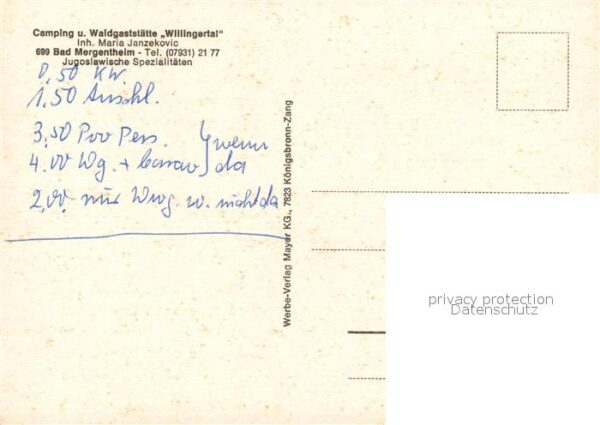 Camping u. Waldgaststätte „Willingertal"
Inh. Maria Janzekovic
699 Bad Mergentheim - Tel. (07931) 21 77
Jugoslawische Spezialitäten
0,50 KW.
1,50 Anschl.
3,50 Pro Pers. } wenn
4.00 Wg. + Carav } da
2,00 nur Wwg. w. nicht da
Werbe-Verlag Mayer KG., 7823 Königsbronn-Zang
privacy protection
Datenschutz